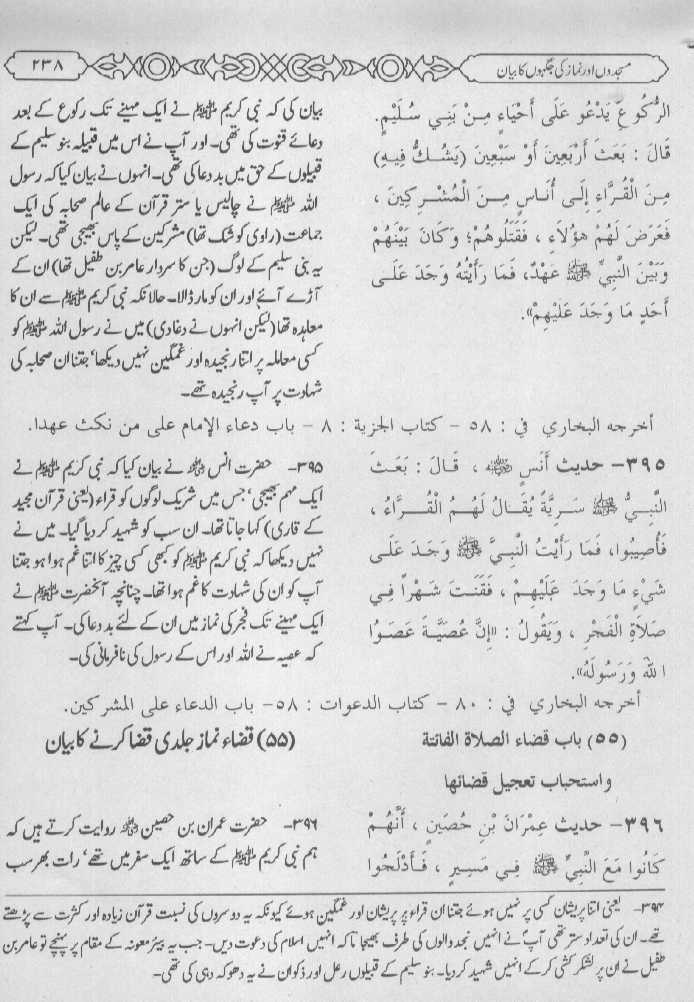 مسجدوں اور نماز کی جگہوں کا بیان
۲۳۸
الرُّكُوعِ يَدْعُو عَلَى أَحْيَاءٍ مِنْ بَنِي سُلَيْمٍ.
قَالَ : بَعَثَ أَرْبَعِينَ أَوْ سَبْعِينَ (يَشُكُّ فِيهِ)
مِنَ الْقُرَّاءِ إِلَى أُنَاسٍ مِنَ الْمُشْرِكِينَ ،
فَعَرَضَ لَهُمْ هٰؤُلَاءِ ، فَقَتَلُوهُمْ؛ وَكَانَ بَيْنَهُمْ
وَبَيْنَ النَّبِيِّ ﷺ عَهْدٌ، فَمَا رَأَيْتُهُ وَجَدَ عَلَى
أَحَدٍ مَا وَجَدَ عَلَيْهِمْ».
بیان کی کہ نبی کریم ﷺ نے ایک مہینے تک رکوع کے بعد
دعائے قنوت کی تھی۔ اور آپ نے اس میں قبیلہ بنو سلیم کے
قبیلوں کے حق میں بد دعا کی تھی۔ انہوں نے بیان کیا کہ رسول
اللہ ﷺ نے چالیس یا ستر قرآن کے عالم صحابہ کی ایک
جماعت (راوی کو شک تھا) مشرکین کے پاس بھیجی تھی۔ لیکن
یہ بنی سلیم کے لوگ (جن کا سردار عامر بن طفیل تھا) ان کے
آڑے آئے اور ان کو مار ڈالا۔ حالانکہ نبی کریم ﷺ سے ان کا
معاہدہ تھا (لیکن انہوں نے دغا دی) میں نے رسول اللہ ﷺ کو
کسی معاملہ پر اتنا رنجیدہ اور غمگین نہیں دیکھا‘ جتنا ان صحابہ کی
شہادت پر آپ رنجیدہ تھے۔
أخرجه البخاري في : ٥٨ - كتاب الجزية : ٨ - باب دعاء الإمام على من نكث عهدا.
٣٩٥- حديث أَنَسٍ ؓ ، قَالَ : بَعَثَ
النَّبِيُّ ﷺ سَرِيَّةً يُقَالُ لَهُمُ الْقُرَّاءُ ،
فَأُصِيبُوا، فَمَا رَأَيْتُ النَّبِيَّ ﷺ وَجَدَ عَلَى
شَيْءٍ مَا وَجَدَ عَلَيْهِمْ ، فَقَنَتَ شَهْرًا فِي
صَلَاةِ الْفَجْرِ ، وَيَقُولُ : «إِنَّ عُصَيَّةَ عَصَوُا
اللهَ وَرَسُولَهُ».
۳۹۵- حضرت انس ؓ نے بیان کیا کہ نبی کریم ﷺ نے
ایک مہم بھیجی‘ جس میں شریک لوگوں کو قراء (یعنی قرآن مجید
کے قاری) کہا جاتا تھا۔ ان سب کو شہید کر دیا گیا۔ میں نے
نہیں دیکھا کہ نبی کریم ﷺ کو کبھی کسی چیز کا اتنا غم ہوا ہو جتنا
آپ کو ان کی شہادت کا غم ہوا تھا۔ چنانچہ آنحضرت ﷺ نے
ایک مہینے تک فجر کی نماز میں ان کے لئے بد دعا کی۔ آپ کہتے
کہ عصیہ نے اللہ اور اس کے رسول کی نافرمانی کی۔
أخرجه البخاري في : ٨٠ - كتاب الدعوات : ٥٨- باب الدعاء على المشركين.
(٥٥) باب قضاء الصلاة الفائتة
واستحباب تعجيل قضائها
(۵۵) قضاء نماز جلدی قضا کرنے کا بیان
٣٩٦- حديث عِمْرَانَ بْنِ حُصَيْنٍ ، أَنَّهُمْ
كَانُوا مَعَ النَّبِيِّ ﷺ فِي مَسِيرٍ ، فَأَدْلَجُوا
۳۹۶- حضرت عمران بن حصین ؓ روایت کرتے ہیں کہ
ہم نبی کریم ﷺ کے ساتھ ایک سفر میں تھے‘ رات بھر سب
۳۹۴- یعنی اتنا پریشان کسی پر نہیں ہوئے جتنا ان قراء پر پریشان اور غمگین ہوئے کیونکہ یہ دوسروں کی نسبت قرآن زیادہ اور کثرت سے پڑھتے
تھے۔ ان کی تعداد ستر تھی آپؐ نے انہیں نجد والوں کی طرف بھیجا تاکہ انہیں اسلام کی دعوت دیں۔ جب یہ بیئر معونہ کے مقام پر پہنچے تو عامر بن
طفیل نے ان پر لشکر کشی کر کے انہیں شہید کر دیا۔ بنو سلیم کے قبیلوں رعل اور ذکوان نے یہ دھوکہ دہی کی تھی۔